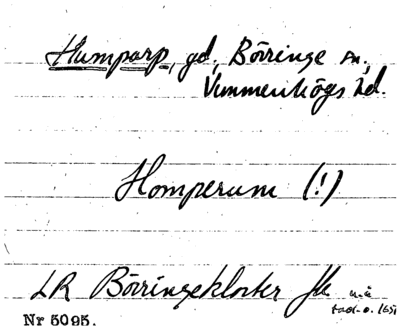 Humparp, gd, Börringe sn,
Vemmenhögs hd.
Homperum (!)
LR Börringekloster
Nr 5095.